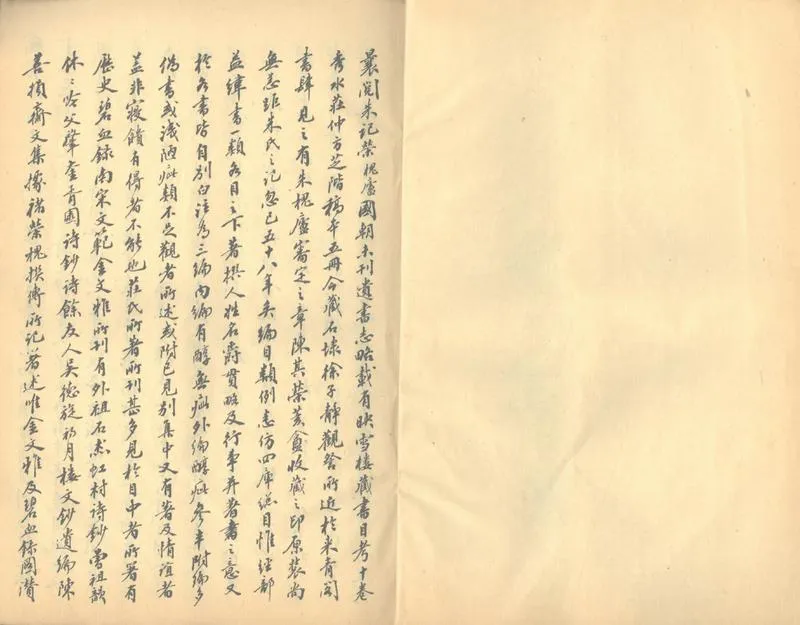 曩閱朱記榮槐廬國朝未刊遺書志略載有映雪樓藏書目考十卷
秀水莊仲方芝階稿本五冊今藏石埭徐子靜觀詧所近於來青閣
書肆見之有朱槐廬審定之章陳其榮芰盦收藏之印原裝尚
無恙距朱氏之記忽已五十八年矣編目類例悉仿四庫總目惟經部
益緯書一類各目之下著撰人姓名爵貫略及行事并著書之意又
於各書皆自別白注為三編內編有醇無疵外編醇疵參半附編多
偽書或淺陋疵類不足觀者所述或附已見別集中又有著及情誼者
蓋非寢饋有得者不能也莊氏所著所刊甚多見於目中者所署有
歷史碧血錄南宋文範金文雅所刊有外祖石杰虹村詩鈔曾祖歆
休之父肇奎胥園詩鈔詩餘友人吳德旋初月樓文鈔遺編陳
善損齋文集據褚榮槐撰傳所記著述唯金文雅及碧血錄國潛